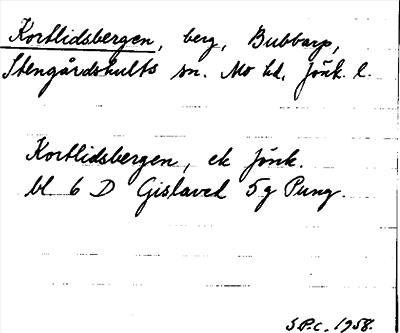 Kortlidsbergen, berg, Bubbarp,
Stengårdshults sn. Mo hd, Jönk. l.
Kortlidsbergen, ek Jönk.
bl 6 D Gislaved 5g Pung.
S.P.C. 1958.